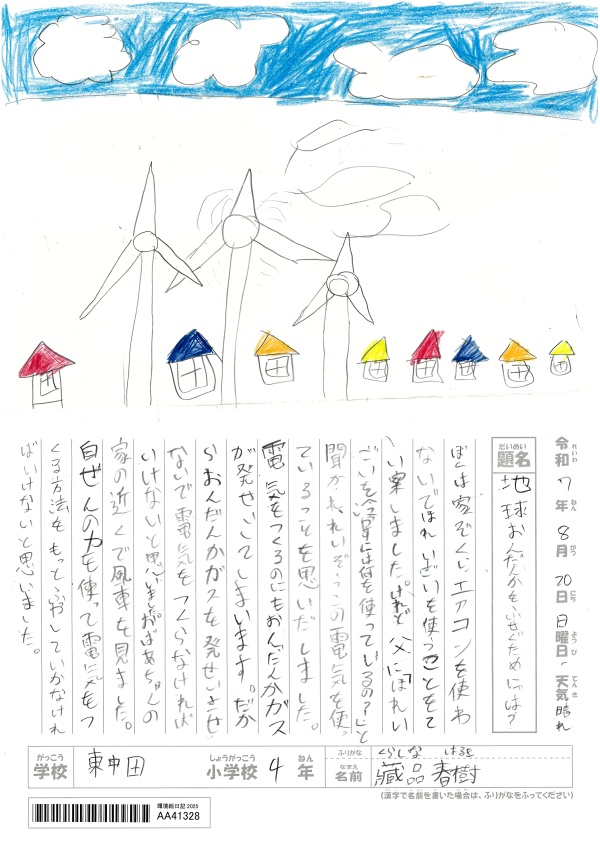 令和7年8月20日日曜日、天気晴れ
れいわ ねん がつ にち ようび てんき
だいめい
題名
地球おんだんかをふせぐためには?
ぼくは家ぞくにエアコンを使わ
ないでほれいざいを使うことをて
い案しました。けれど父に「ほれい
ざいを冷すには何を使っているの?」と
聞かれ、れいぞうこの電気を使っ
ていることを思いだしました。
電気をつくるのにもおんだんかガス
が発せいしてしまいます。だか
らおんだんかガスを発せいさせ
ないで電気をつくらなければ
いけないと思いました。おばあちゃんの
家の近くで風車を見ました。
自ぜんの力を使って電気をつ
くる方法をもっとふやしていかなけれ
ばいけないと思いました。
がっこう
学校
東中田
しょうがっこう
小学校
4
ねん
年
ふりがな
くらしな はるき
なまえ
名前
藏品春樹
(漢字で名前を書いた場合は、ふりがなをふってください)
環境絵日記2025
AA41328